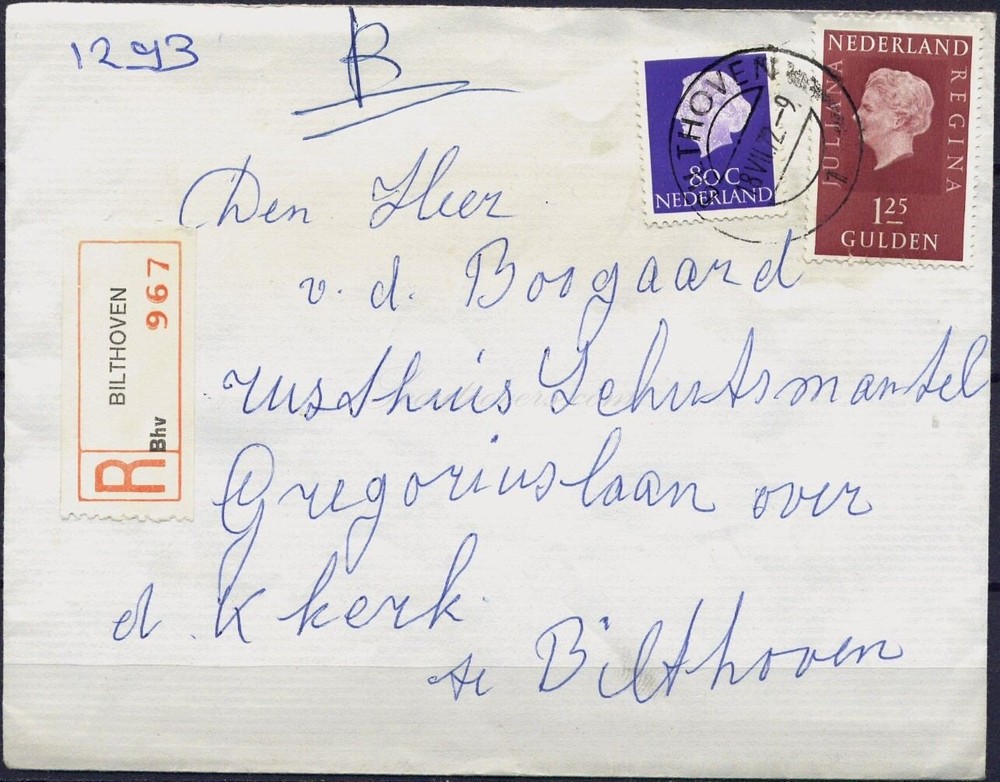 1293
B
NEDERLAND
JULIANA REGINA
1 25
GULDEN
80 C
NEDERLAND
BILTHOVEN
8 VII.72-9
1
Den Heer
v. d. Boogaard
rusthuis Schutsmantel
Gregoriuslaan over
d. K kerk.
te Bilthoven
BILTHOVEN
967
Bhv
R